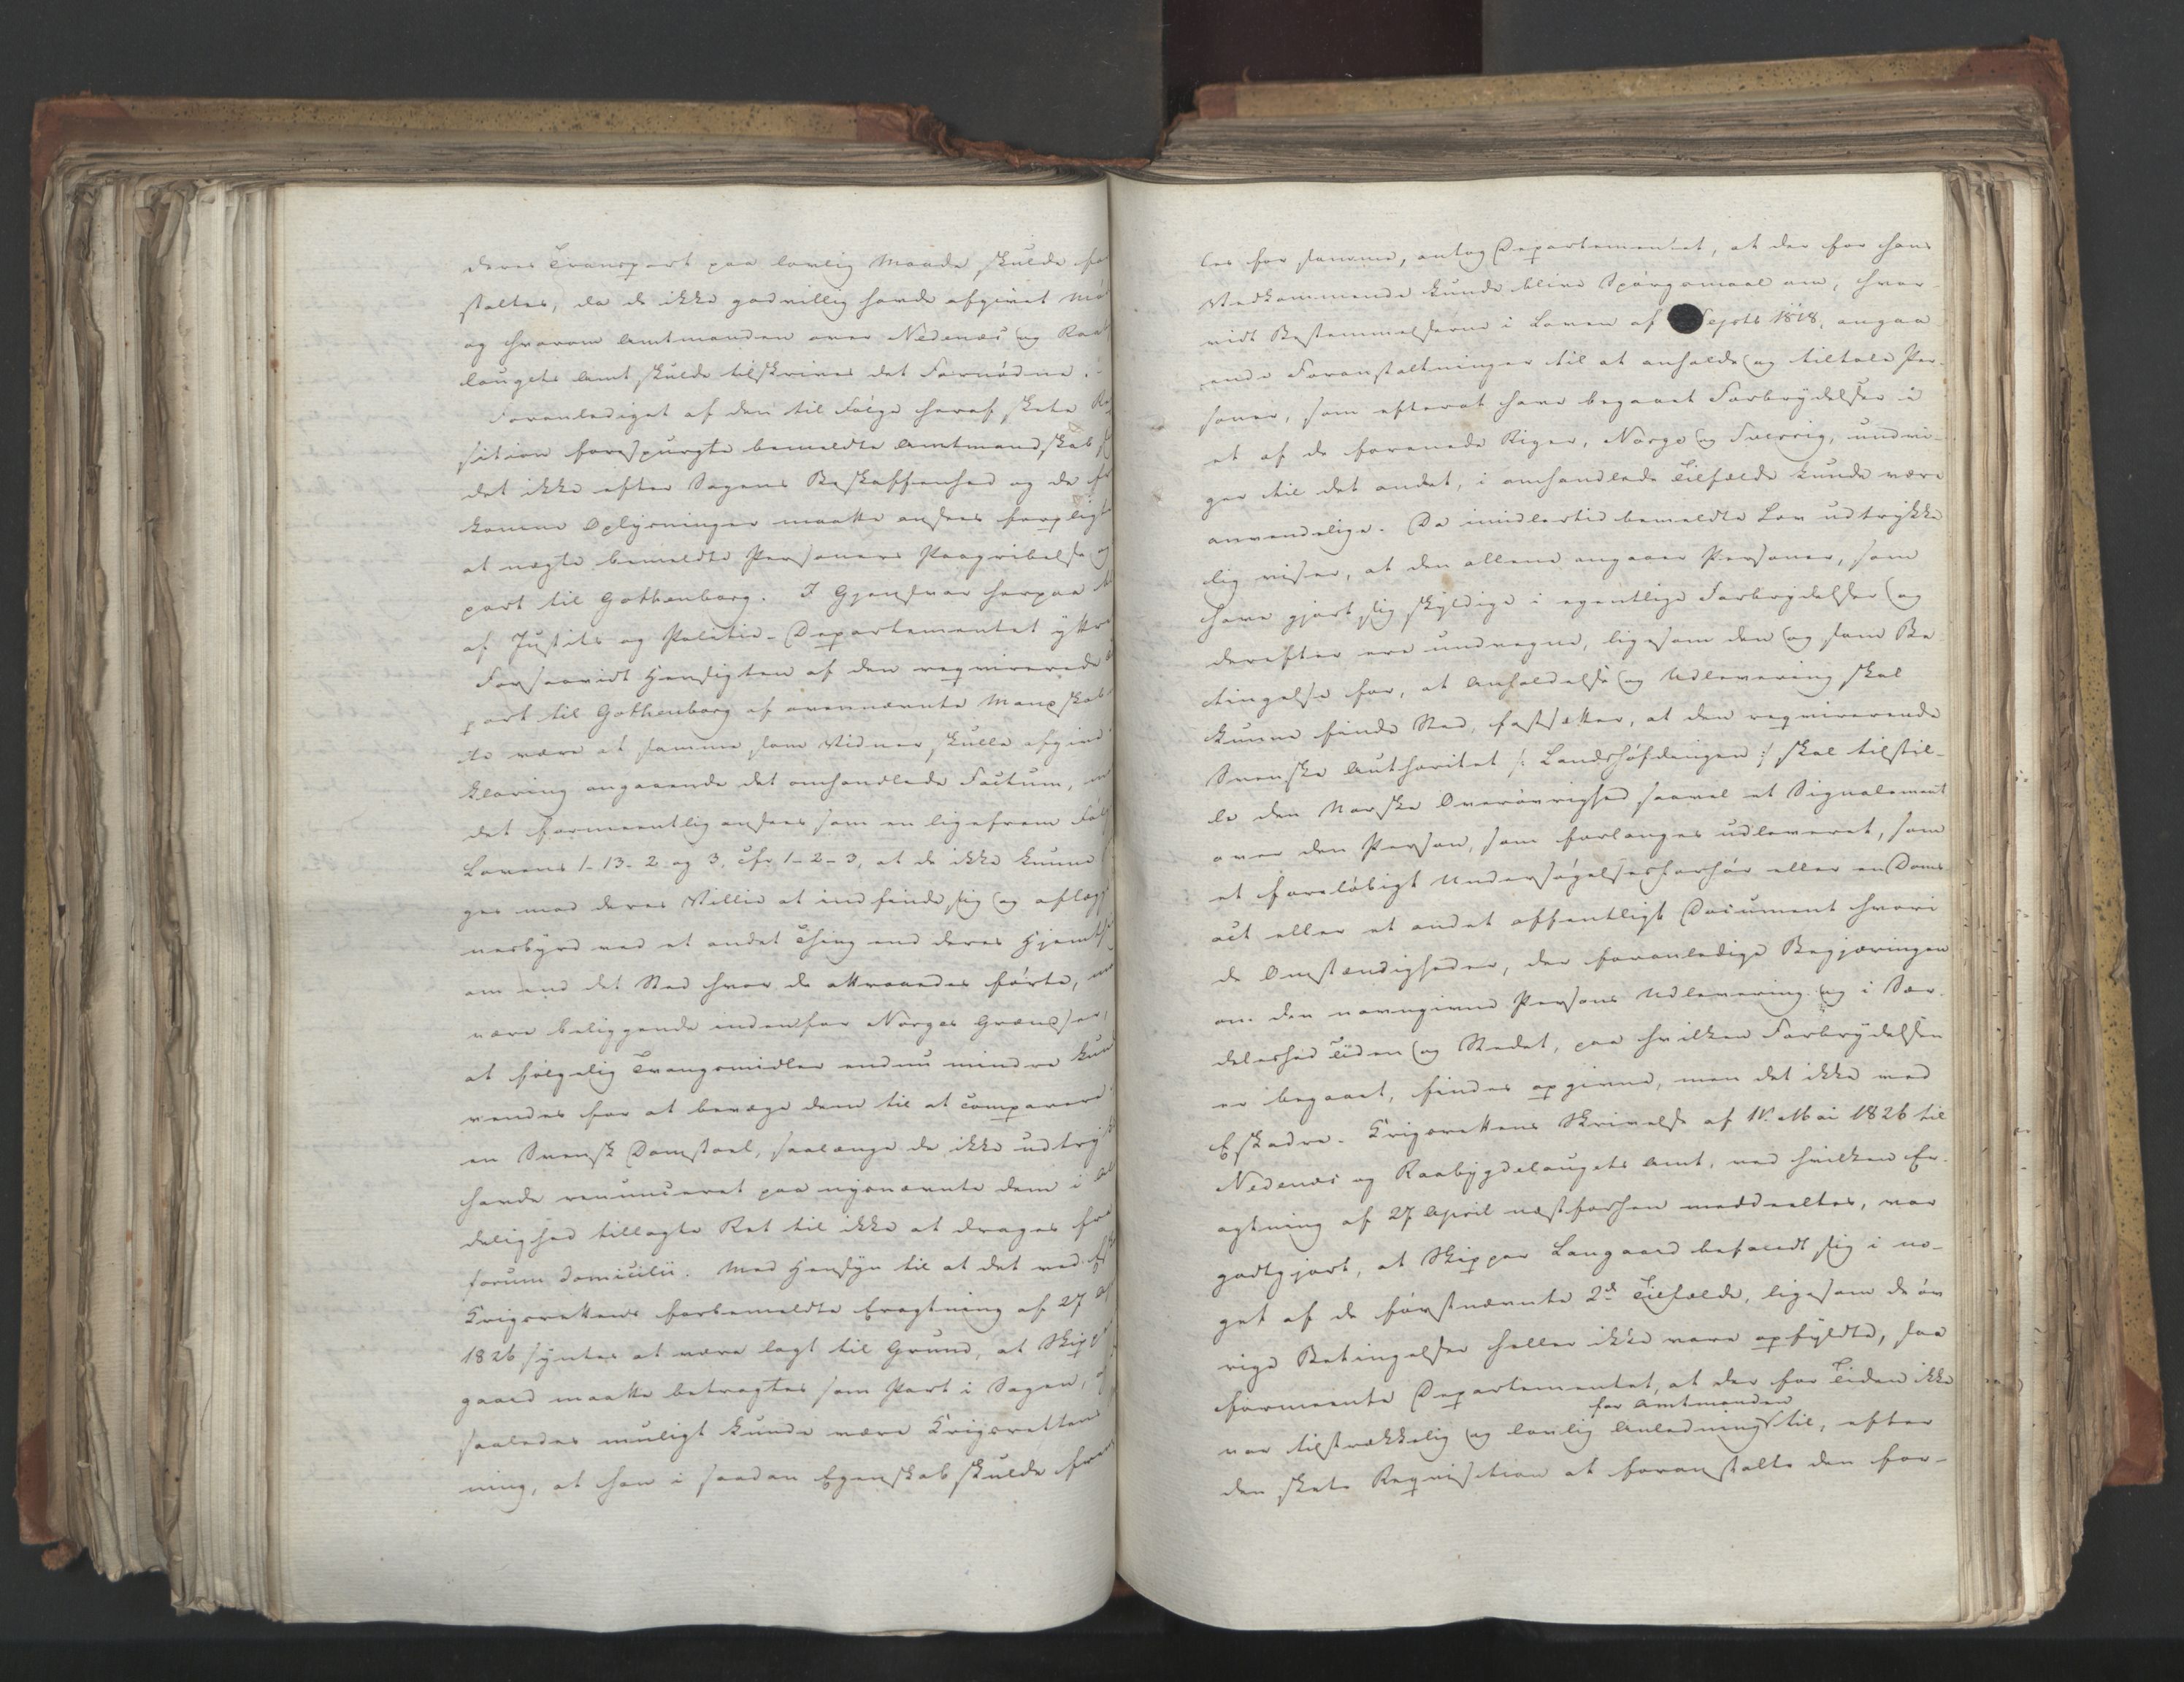 deres Transport paa lovlig Maade skulde for
staltes, da de ikke godvillig havde afgivet Mø
og hvorom Amtmanden over Nedenæs og Raab
laugets Amt skulde tilskrives det Fornødne.
Foranlediget af den til Følge heraf skete Re
sition forespurgte bemeldte Amtmandskab
det ikke efter Sagens Beskaffenhed og de fre
komne Oplysninger maatte ansees forpligt
at nægte bemeldte Personers Paagribelse og
port til Gothenborg. I Gjensvar herpaa
af Justits og Politie-Departementet yttre
Forsaavidt Hensigten af den reqvirerede
port til Gothenborg af ovennævnte Mandskab
te være at samme som Vidner skulle afgive
klaring angaaende det omhandlede Factum, m
det formeentlig ansees som en ligefrem Føl
Lovens 1-13-2 og 3, cfr 1-2-3, at de ikke kunne
ges mod deres Villie at indfinde sig og aflæg
nesbyrd ved et andet Thing end deres Hjemth
om end det Sted hvor de attraaedes førte, m
være beliggende indenfor Norges Grændser,
at følgelig Tvangsmidler endnu mindre kun
vendes for at bevæge dem til at comparere
en Svensk Domstoel, saalænge de ikke udtryk
havde renunceret paa nysnævnte dem i Al
delighed tillagte Ret til ikke at drages fra
forum domicilii. Med Hensyn til at det ved Esk
Krigsrettens forbemeldte Eragtning af 27 Ap
1826 syntes at være lagt til Grund, at Skipp
gaard maatte betragtes som Part i Sagen, o
saaledes muligt kunde være Krigsrettens
ning, at han i saadan Egenskab skulde frem
les for samme, antog Departementet, at der for hans
Vedkommende kunde blive Spørgsmaal om, hvor-
vidt Bestemmelserne i Loven af Septb 1818, angaa
ende Foranstaltninger til at anholde og tiltale Per-
soner, som efterat have begaaet Forbrydelser i
et af de forenede Riger, Norge og Sverrig, undvi-
ger til det andet, i omhandlede Tilfælde kunde være
anvendelige. Da imidlertid bemeldte Lov udtrykke
lig viser, at den allene angaaer Personer, som
have gjort sig skyldige i egentlige Forbrydelser og
derefter ere undvegne, ligesom den og som Be
tingelse for, at Anholdelse og Udlevering skal
kunne finde Sted, fastsætter, at den reqvirerende
Svenske Authoritet /: Landshøfdingen :/ skal tilstil-
le den Norske Overøvrighed saavel et Signalement
over den Person, som forlanges udleveret, som
et foreløbigt Undersøgelsesforhør eller en Doms
act eller et andet offentligt Document hvori
de Omstændigheder, der foranledige Begjæringen
om den navngivne Persons Udlevering og i Sær-
deleshed Tiden og Stedet, paa hvilken Forbrydelsen
er begaaet, findes opgivne, men det ikke med
Eskadre-Krigsrettens Skrivelse af 11. Mai 1826 til
Nedenæs og Raabygdelaugets Amt, ved hvilken Er-
agtning af 27 April næstforhen meddeeltes, var
godtgjort, at Skipper Langaard befandt sig i no-
get af de førstnævnte 2de Tilfælde, ligesom de øv
rige Betingelser heller ikke vare opfyldte, saa
formeente Departementet, at der for Tiden ikke
for Amtmanden
var tilstrækkelig og lovlig Anledning til, efter
den skete Reqvisition at foranstalte den for-